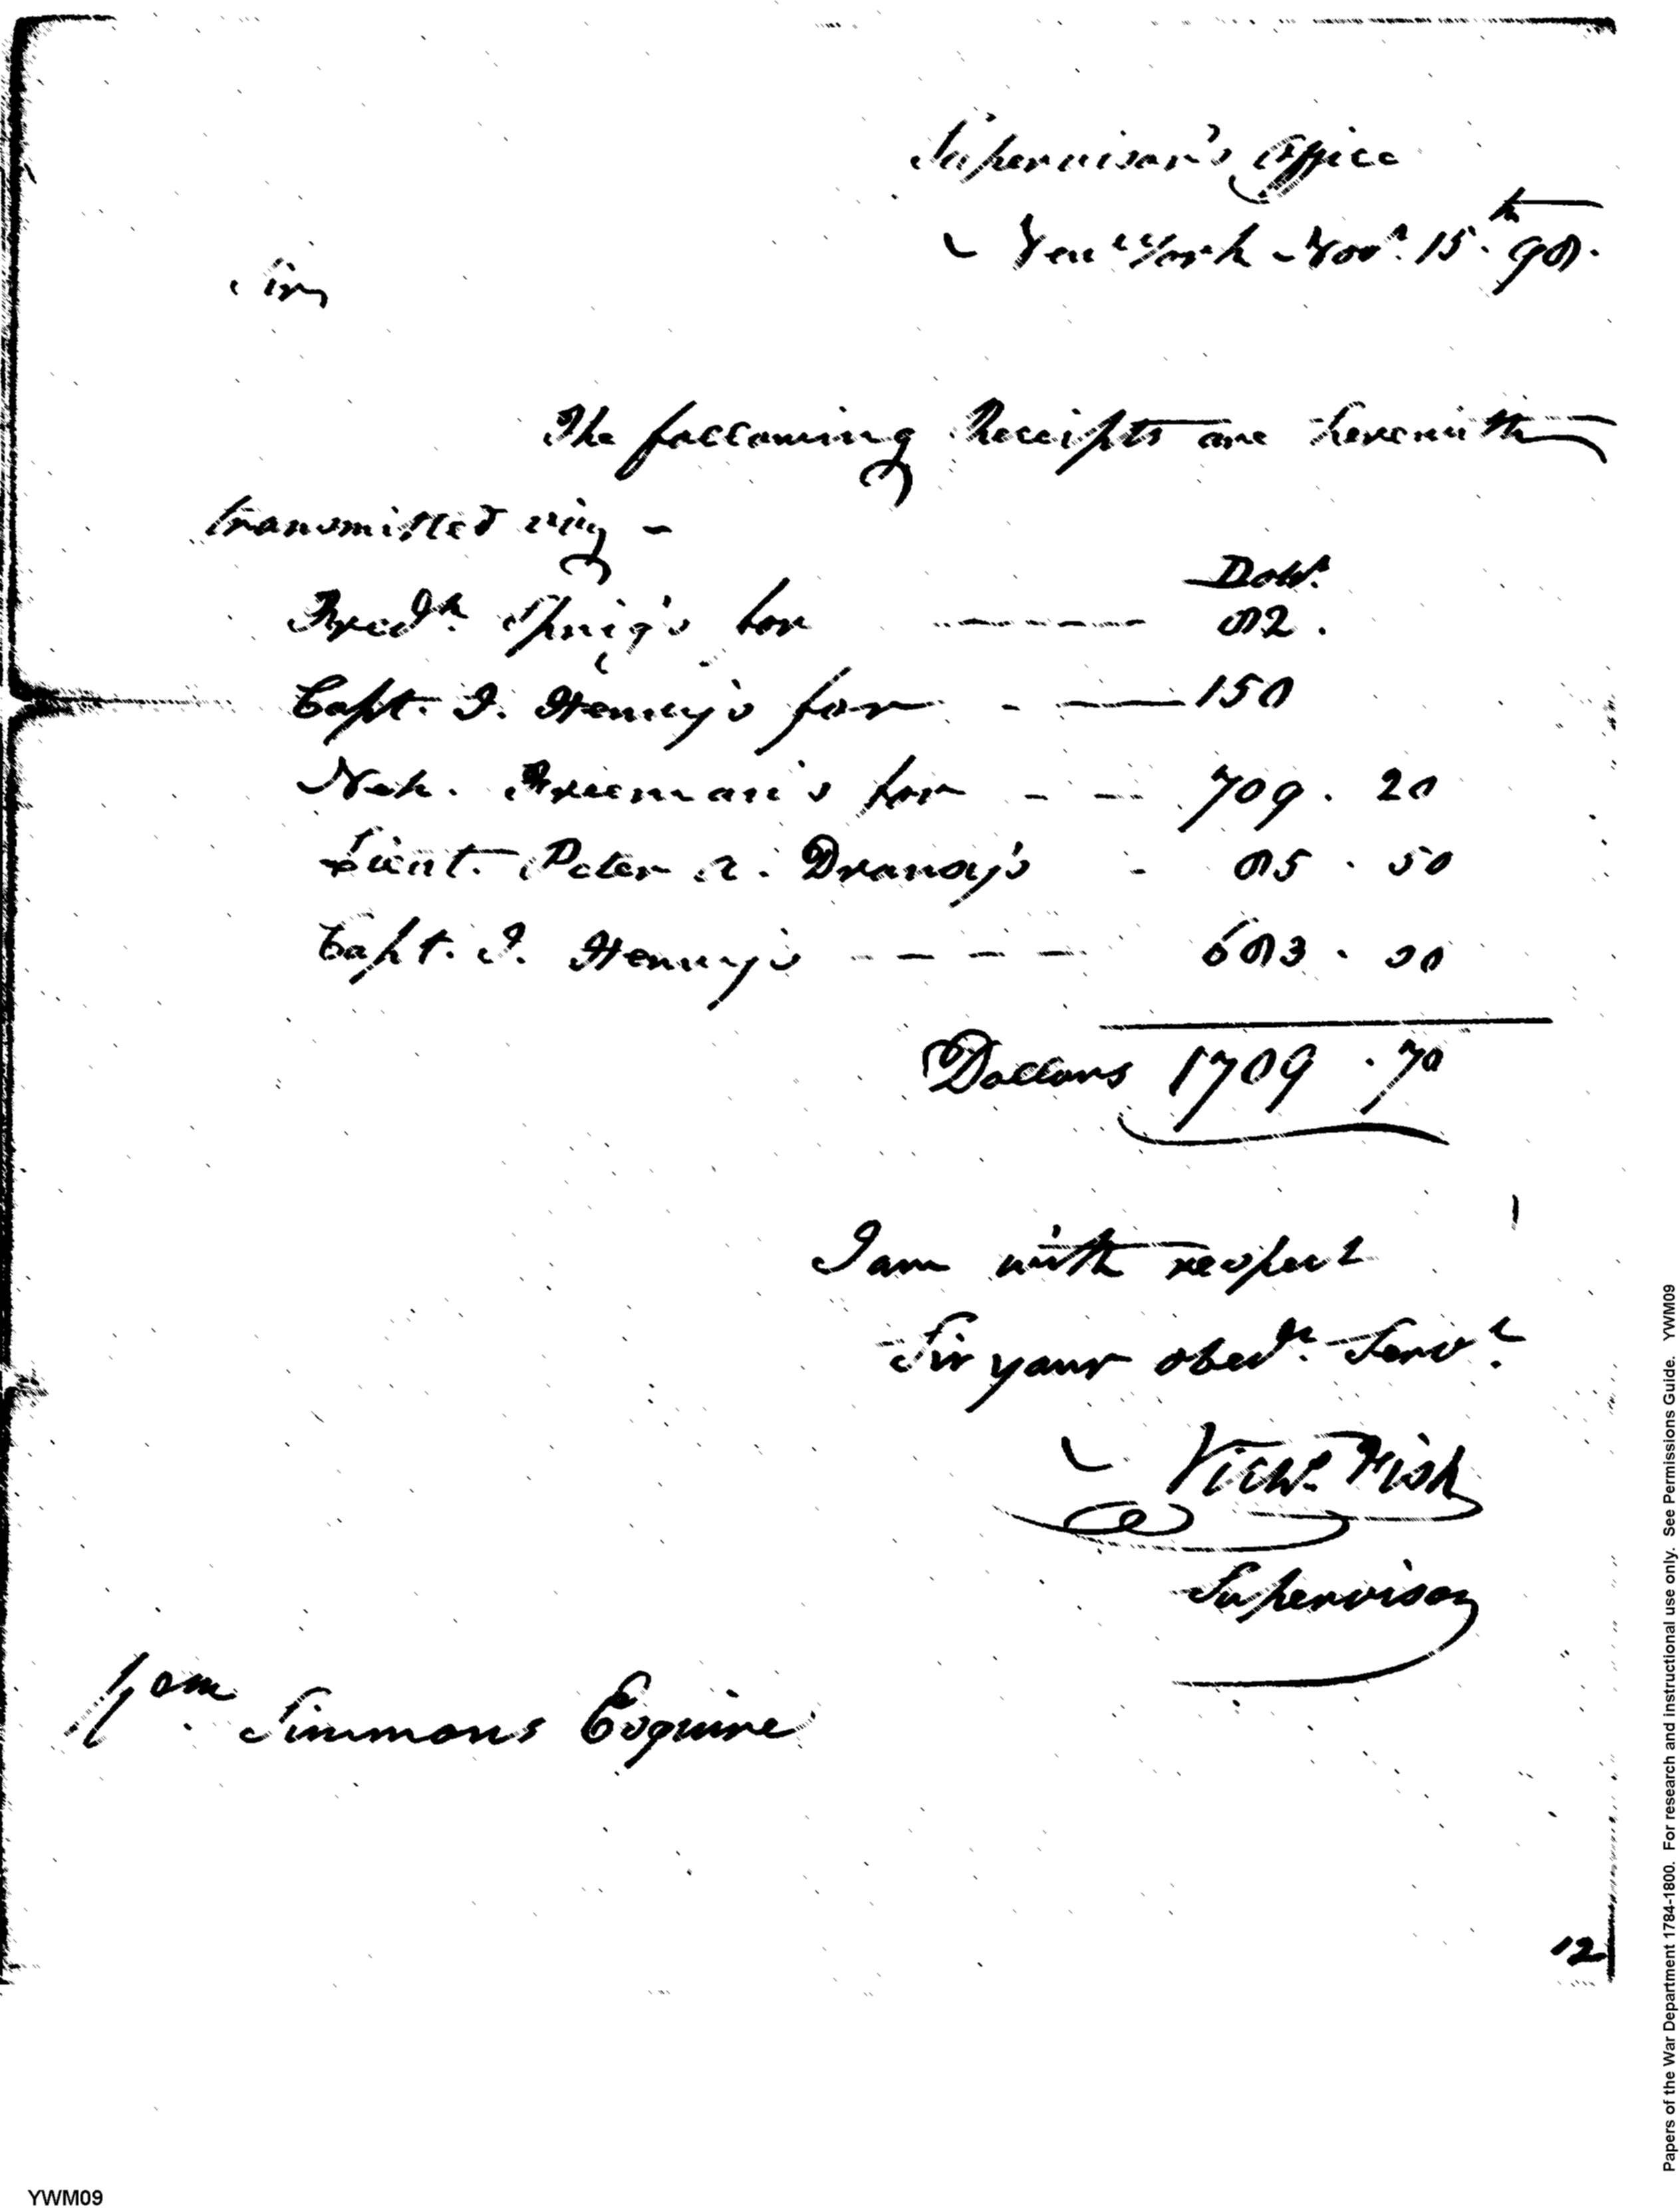 Supervisor's Office
New York Nov.r 15.th 98.
Sir,
The following Receipts are herewith
transmitted viz -
Doll.s
Fred.k Sprig's for ------- 82.
Capt. J. Henry's for - --- 150
Neh. Freeman's for - -- 709. 20
Lieut. Peter A. Dransy's - 85. 50
Capt. J. Henry's ---- 683. 00
Dollars 1709. 70
I am with respect
Sir your obed.t Serv.t
Nich.s Fish
Supervisor
W.m Simmons Esquire
12
YWM09
Papers of the War Department 1784-1800. For research and instructional use only. See Permissions Guide. YWM09